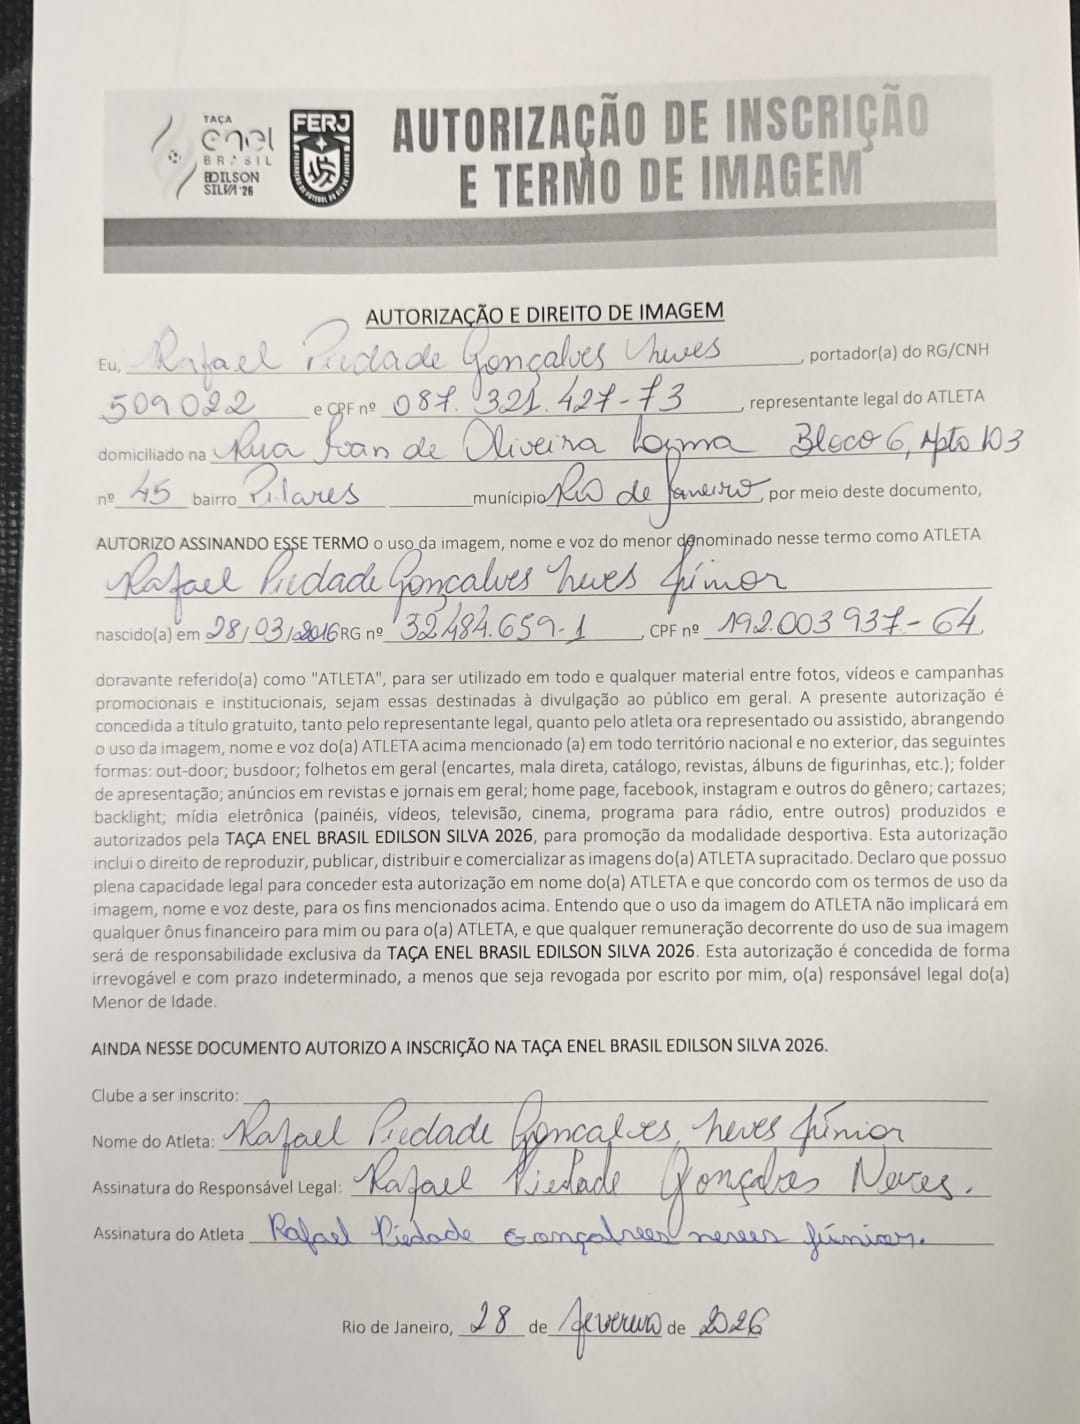 TAÇA
enel
BRASIL
EDILSON
SILVA '26
FERJ
FEDERAÇÃO DE FUTEBOL DO RIO DE JANEIRO
AUTORIZAÇÃO DE INSCRIÇÃO
E TERMO DE IMAGEM
AUTORIZAÇÃO E DIREITO DE IMAGEM
Eu, Rafael Piedade Gonçalves Neves, portador(a) do RG/CNH
509022 e CPF nº 087.321.427-73, representante legal do ATLETA
domiciliado na Rua Ivan de Oliveira Bloco 6, Apto 103
nº 45 bairro Pilares munícipio Rio de Janeiro, por meio deste documento,
AUTORIZO ASSINANDO ESSE TERMO o uso da imagem, nome e voz do menor denominado nesse termo como ATLETA
Rafael Piedade Gonçalves Neves Júnior
nascido(a) em 28/03/2016 RG nº 32484.659-1, CPF nº 192.003937-64,
doravante referido(a) como "ATLETA", para ser utilizado em todo e qualquer material entre fotos, vídeos e campanhas
promocionais e institucionais, sejam essas destinadas à divulgação ao público em geral. A presente autorização é
concedida a título gratuito, tanto pelo representante legal, quanto pelo atleta ora representado ou assistido, abrangendo
o uso da imagem, nome e voz do(a) ATLETA acima mencionado (a) em todo território nacional e no exterior, das seguintes
formas: out-door; busdoor; folhetos em geral (encartes, mala direta, catálogo, revistas, álbuns de figurinhas, etc.); folder
de apresentação; anúncios em revistas e jornais em geral; home page, facebook, instagram e outros do gênero; cartazes;
backlight; mídia eletrônica (painéis, vídeos, televisão, cinema, programa para rádio, entre outros) produzidos e
autorizados pela TAÇA ENEL BRASIL EDILSON SILVA 2026, para promoção da modalidade desportiva. Esta autorização
inclui o direito de reproduzir, publicar, distribuir e comercializar as imagens do(a) ATLETA supracitado. Declaro que possuo
plena capacidade legal para conceder esta autorização em nome do(a) ATLETA e que concordo com os termos de uso da
imagem, nome e voz deste, para os fins mencionados acima. Entendo que o uso da imagem do ATLETA não implicará em
qualquer ônus financeiro para mim ou para o(a) ATLETA, e que qualquer remuneração decorrente do uso de sua imagem
será de responsabilidade exclusiva da TAÇA ENEL BRASIL EDILSON SILVA 2026. Esta autorização é concedida de forma
irrevogável e com prazo indeterminado, a menos que seja revogada por escrito por mim, o(a) responsável legal do(a)
Menor de Idade.
AINDA NESSE DOCUMENTO AUTORIZO A INSCRIÇÃO NA TAÇA ENEL BRASIL EDILSON SILVA 2026.
Clube a ser inscrito:
Nome do Atleta: Rafael Piedade Gonçalves Neves Júnior
Assinatura do Responsável Legal: Rafael Piedade Gonçalves Neves.
Assinatura do Atleta Rafael Piedade Gonçalves neves júnior.
Rio de Janeiro, 28 de fevereiro de 2026